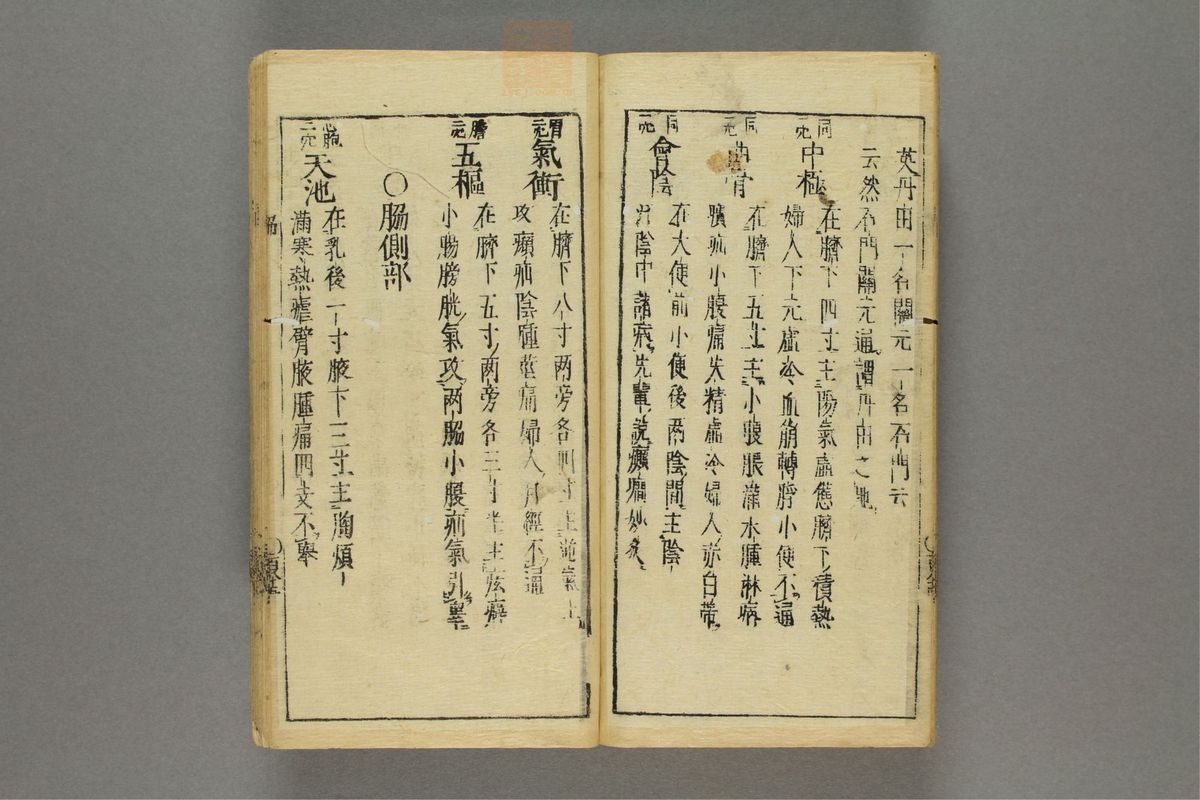 英丹田一名關元一名石門云
云然石門關元通謂丹田之地
同二穴
中極
在臍下四寸主陽氣虛憊臍下積熱
婦人下元虛冷血崩轉脬小便不通
同二穴
在臍下五寸主小腹脹滿水腫淋病
㿉疝小腹痛失精虛冷婦人赤白帶
同二穴
會陰
在大便前小便後兩陰間主陰
汁陰中諸病先輩說癲癇妙灸
胃二穴
氣衝
在臍下八寸两旁各四寸主逆氣上
攻㿉疝陰腫莖痛婦人月經不通
膽二穴
五樞
在臍下五寸两旁各三寸半主痃癖
小腸膀胱氣攻两脇小腹疝氣引
○脇側部
心胞二穴
天池
在乳後一寸腋下三寸主胸煩
滿寒熱瘧臂腋腫痛四支不舉